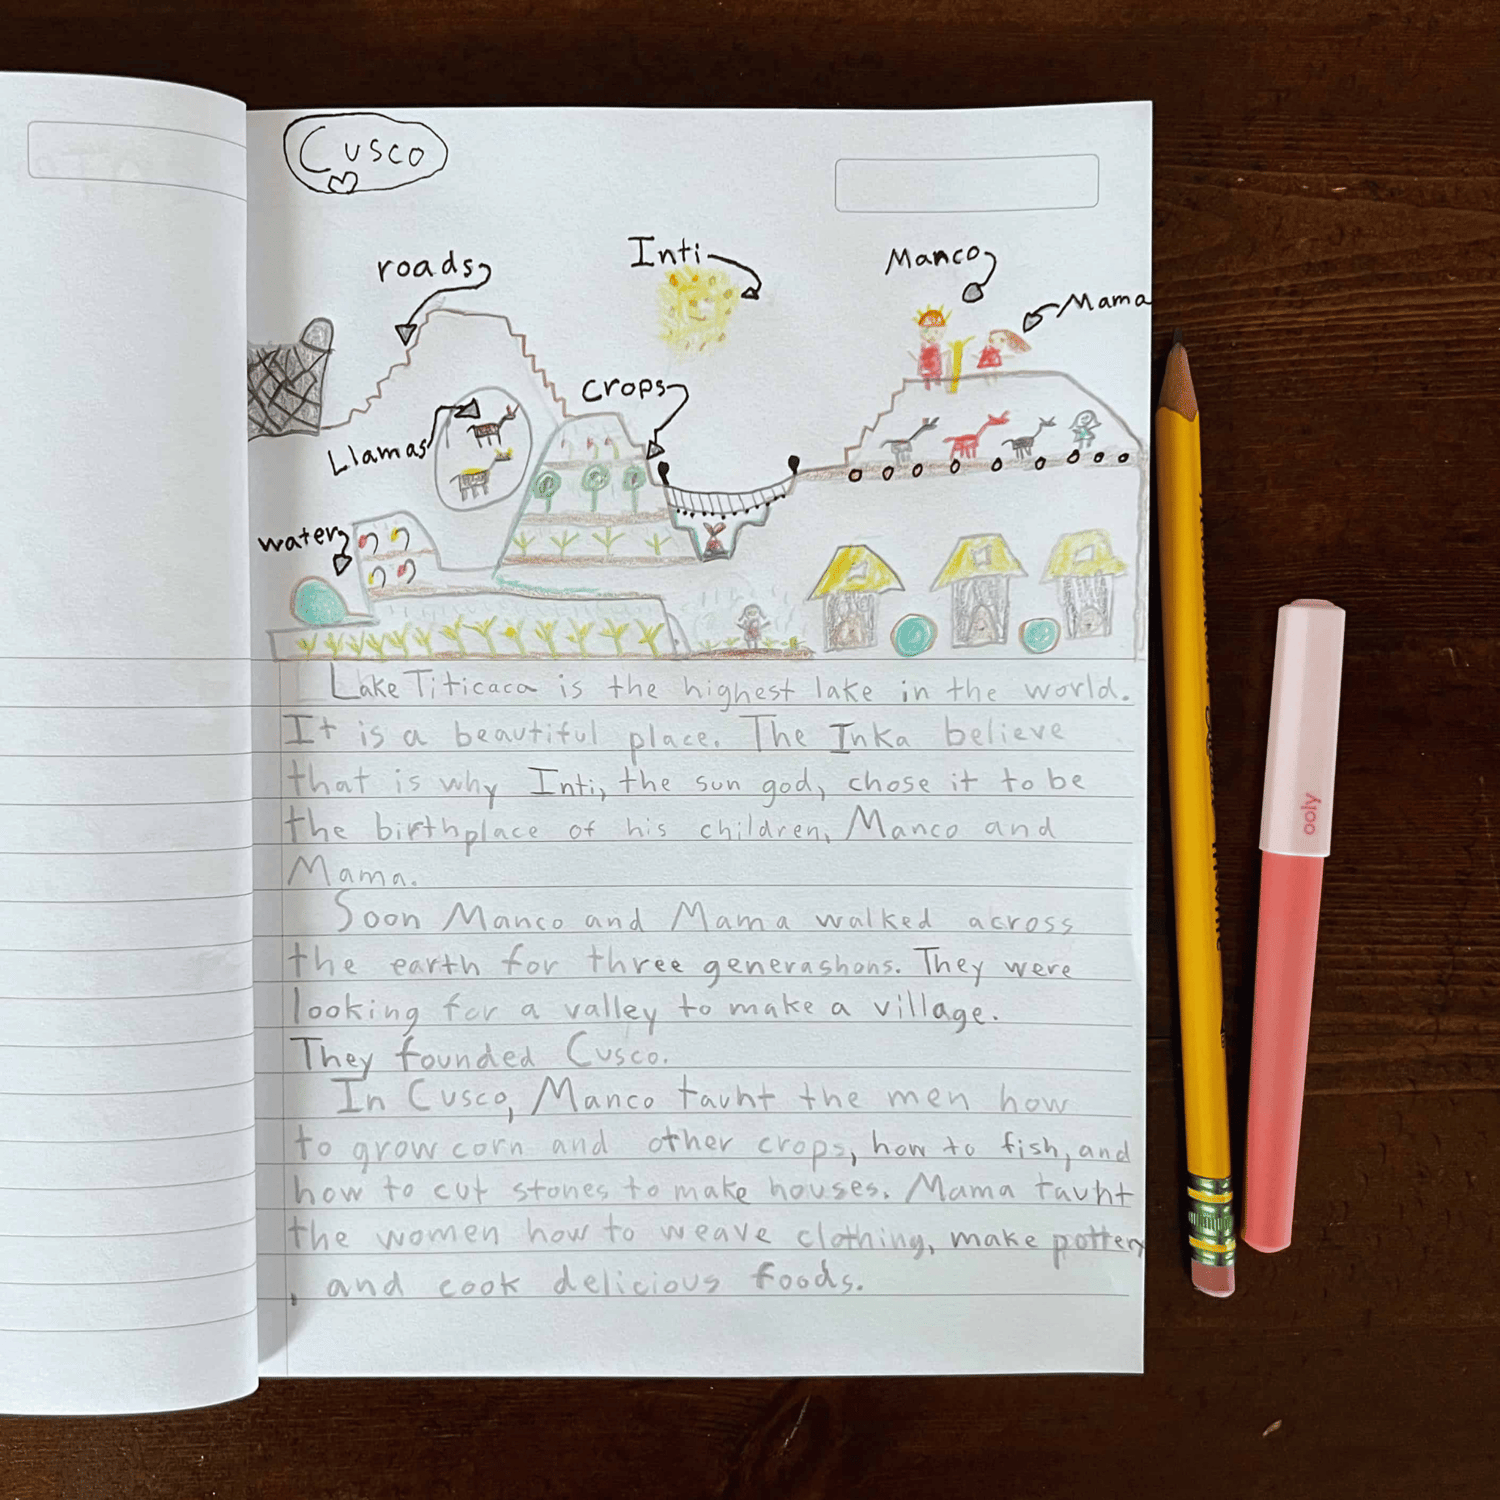 Cusco
roads
Inti
Manco
Mama
crops
Llamas
water
Lake Titicaca is the highest lake in the world.
It is a beautiful place. The Inka believe
that is why Inti, the sun god, chose it to be
the birthplace of his children, Manco and
Mama.
Soon Manco and Mama walked across
the earth for three generashons. They were
looking for a valley to make a village.
They founded Cusco.
In Cusco, Manco tauht the men how
to grow corn and other crops, how to fish, and
how to cut stones to make houses. Mama tauht
the women how to weave clothing, make pottery
, and cook delicious foods.
ooly